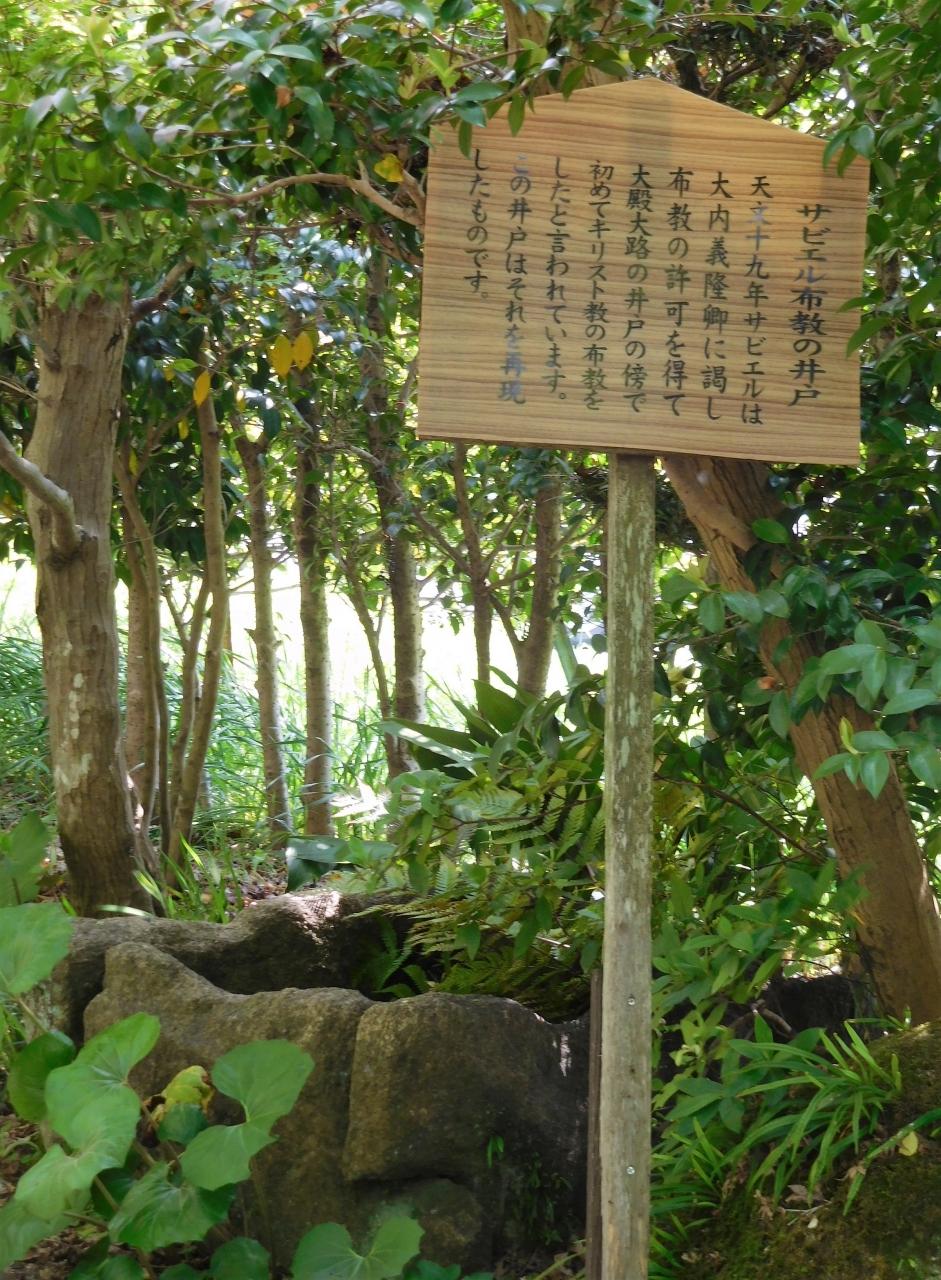 サビエル布教の井戸
天文十九年サビエルは
大内義隆卿に謁し
布教の許可を得て
大殿大路の井戸の傍で
初めてキリスト教の布教を
したと言われています。
この井戸はそれを再現
したものです。